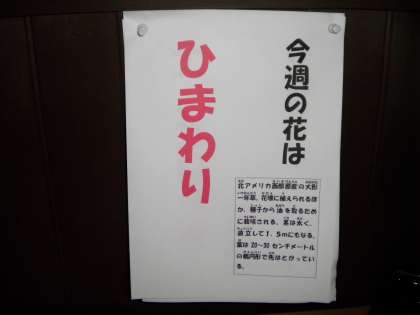 今週の花は
ひまわり
北アメリカ西部原産の大形
一年草。花壇に植えられるほ
か、種子から油を取るため
に栽培される。茎は太く、
直立して1．5mにもなる。
葉は20～30センチメートル
の楕円形で先はとがってい
る。